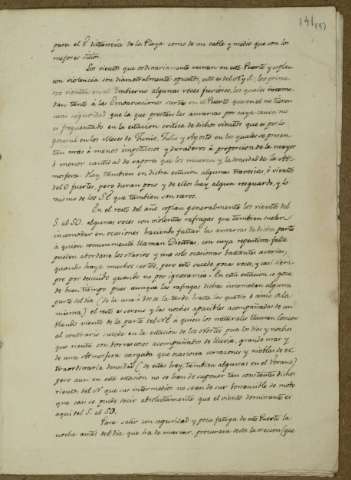 141
para el E distancia de la Playa como de un cable y medio que son los
mejores
Los vientos que ordinariamente reinan en este Puerto y soplan
con violencia son diametralmente opuestos, estos es del N y S: los prime
ros vientos en el Imbierno algunas veces furiosos, los quales incomo
dan tanto á las Embarcaciones surtas en el Puerto que no tienen
mas seguridad que la que prestan las amarras por cuya causa no
es frequentado en la estacion critica de dichos vientos que es por lo
general en los Meses de Junio, Julio y Agosto en los quales se presen
tan mas ó menos impetuosos y duraderos á proporcion de la mayor
ó menor cantidad de vapores que los mueven y la densidad de la At
mosfera. Hay tambien en dicha estacion algunas
del O fuertes, pero duran poco y de ellos hay algun resguardo, y lo
mismo de los SE que tambien son raros.
En el resto del año soplan generalmente los vientos del
S. al SO. algunas veces con violentas rafagas que tambien suelen
incomodar en ocasiones haciendo faltar las amarras de dicha parte
á quien comunmente llaman con cuya repentina falta
pueden abordarse los Navios y aun ocasionar bastantes averias,
quando haya muchos surtos, pero esto sucede pocas veces, y asi siem
pre por descuido quando no por ignorancia. En esta estacion se goza
de buen tiempo pues aunque las rafagas dichas incomodan alguna
parte del dia (de la una á dos de la tarde hasta las quatro ó seis de la
misma) el resto es sereno y las noches apacibles acompañadas de un
blando viento de la parte del NE á quienes los naturales llaman
al contrario sucede en la estacion de los Nortes pues los dias y noches
que reinan son tormentosos acompañados de lluvia, grande mar y
de una atmosfera cargada que ocasiona cerrazones y nieblas de es
traordinaria densidad (de estas hay tambien algunas en el Verano)
pero aun en esta estacion no se han de suponer tan constantes dichos
vientos del N que sus intermedios no sean de sur bonancible de modo
que casi se puede decir absolutamente que el viento dominante es
aqui del S. al SO.
Para salir con seguridad y poca fatiga de este Puerto la
noche antes del dia que ha de marear, procurara este la